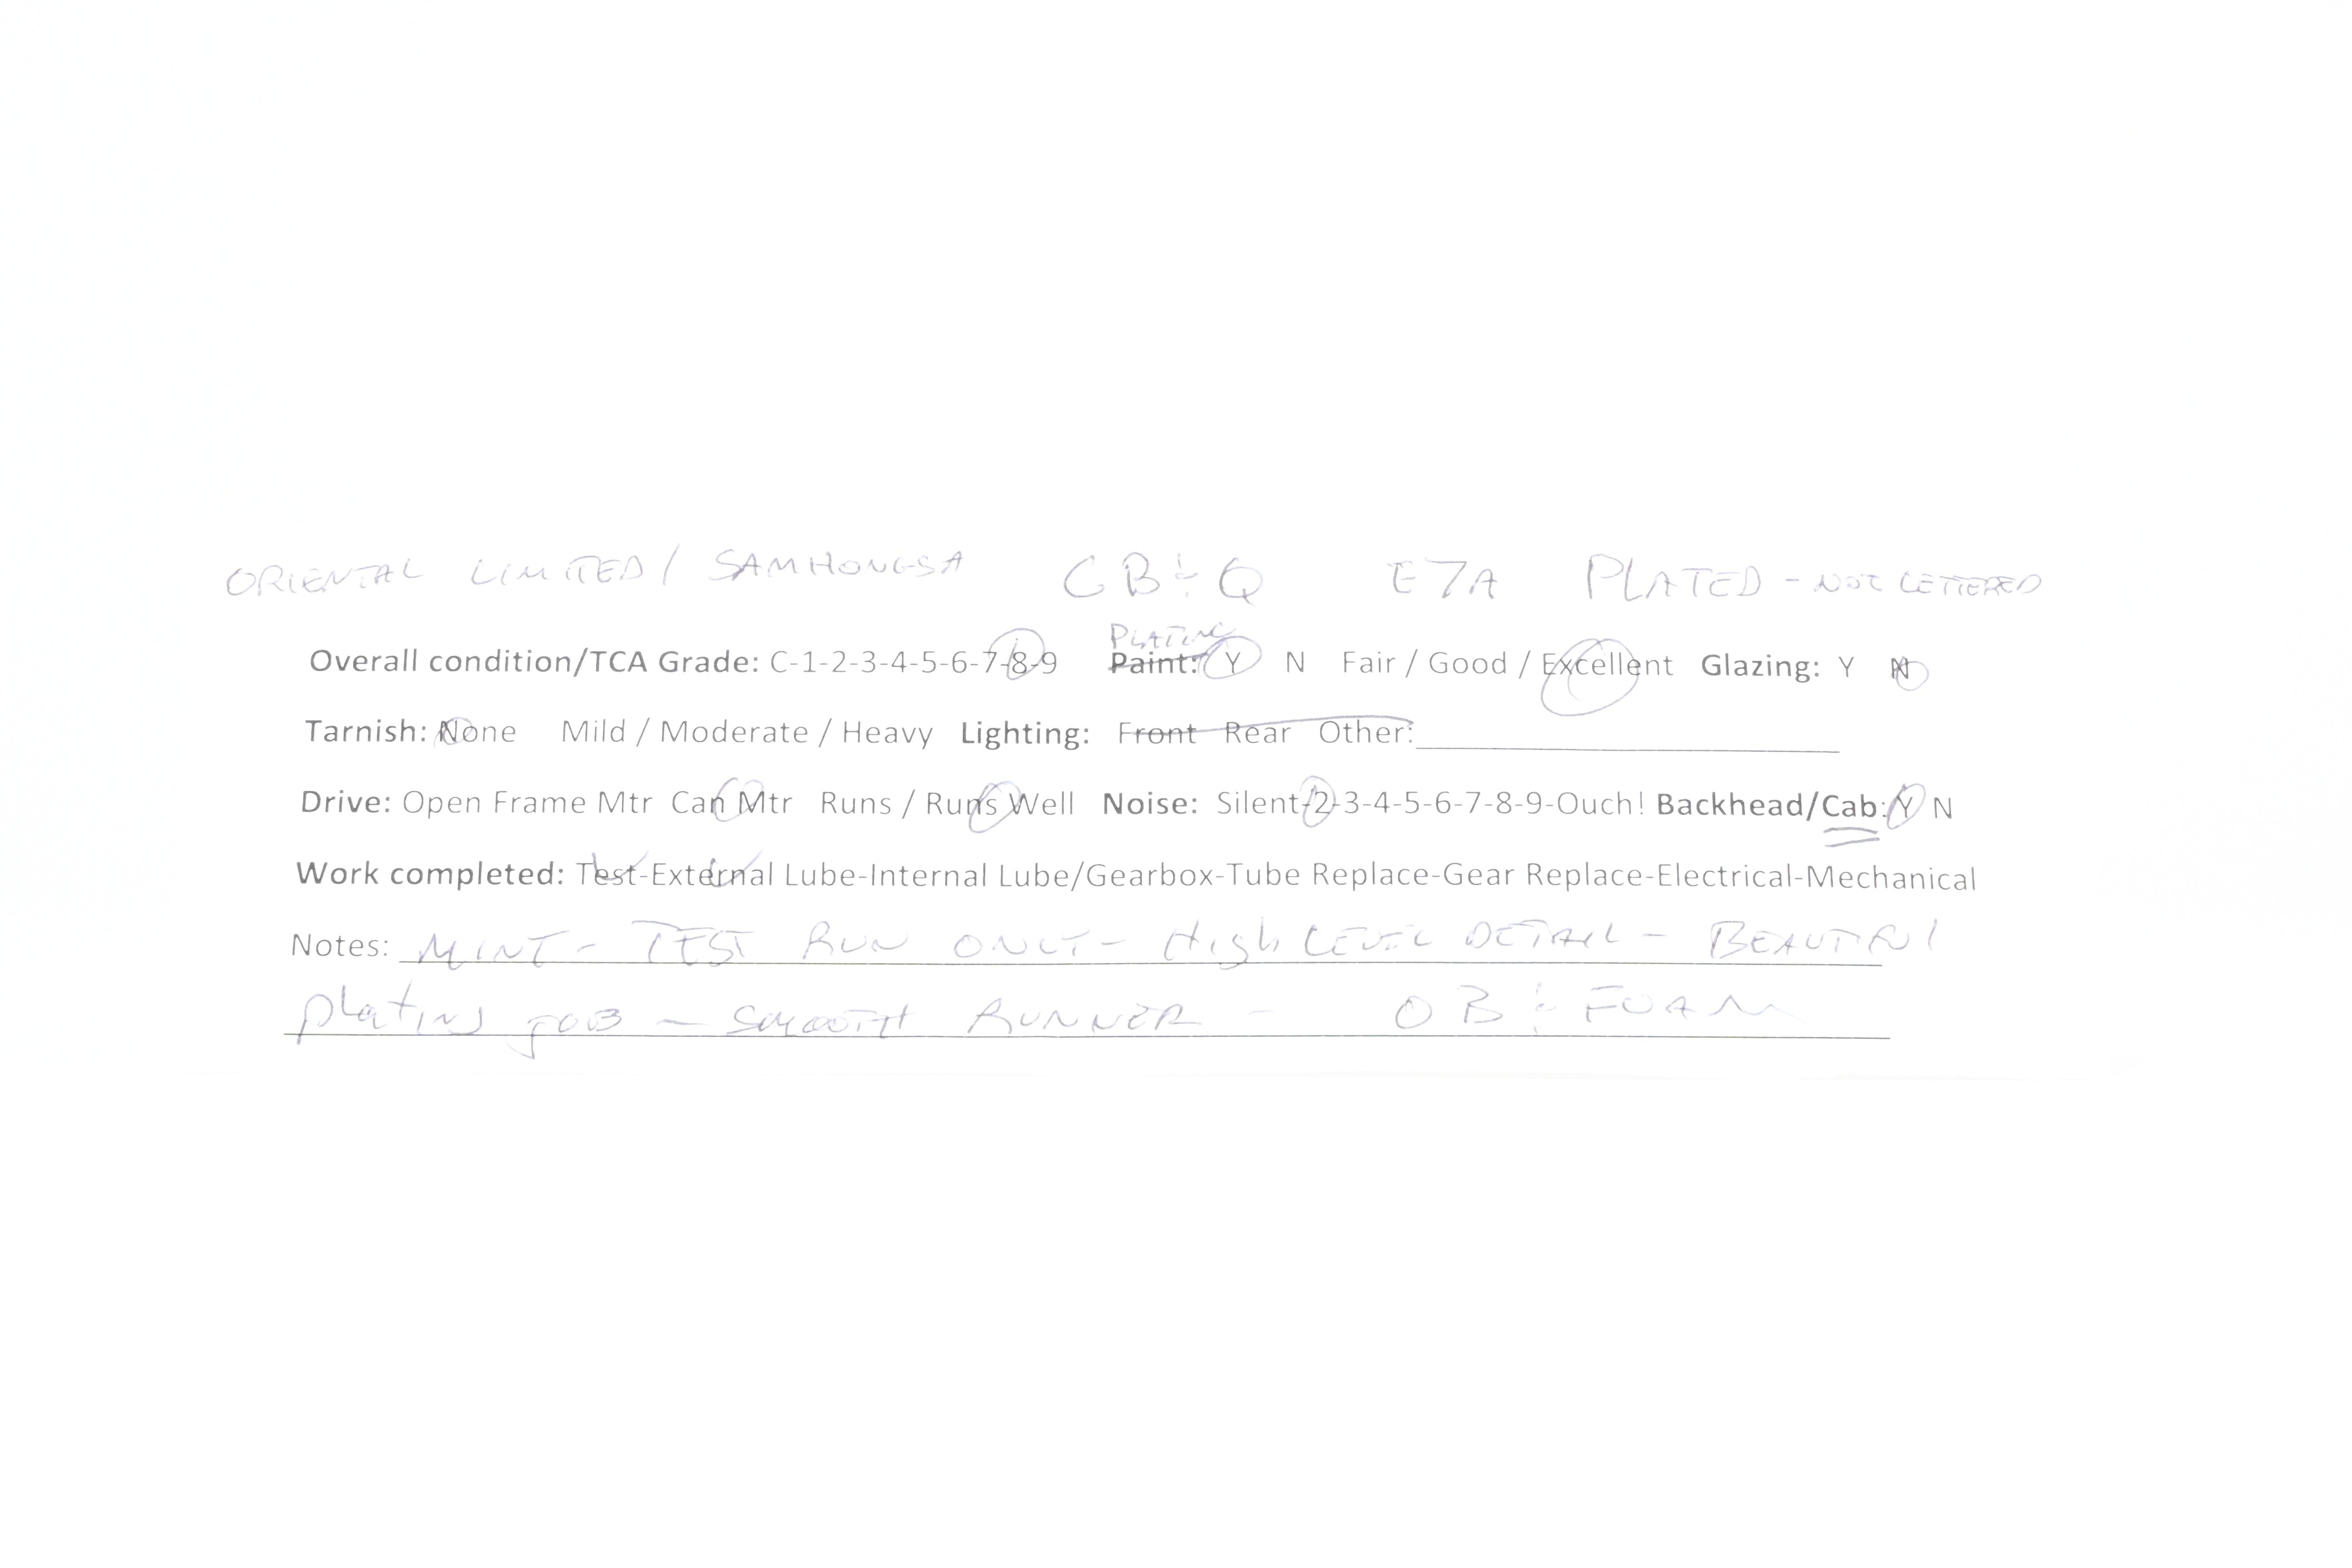 ORIENTAL LIMITED / SAMHONGSA CB&Q E7A PLATED - NOT LETTERED
PLATING
Overall condition/TCA Grade: C-1-2-3-4-5-6-7-8-9 Paint: Y N Fair / Good / Excellent Glazing: Y N
Tarnish: None Mild / Moderate / Heavy Lighting: Front Rear Other:
Drive: Open Frame Mtr Can Mtr Runs / Runs Well Noise: Silent-2-3-4-5-6-7-8-9-Ouch! Backhead/Cab: Y N
Work completed: Test-External Lube-Internal Lube/Gearbox-Tube Replace-Gear Replace-Electrical-Mechanical
Notes: MINT - TEST RUN ONLY - High LEVEL DETAIL - BEAUTIFUL
plating JOB - SMOOTH RUNNER - OB & FOAM